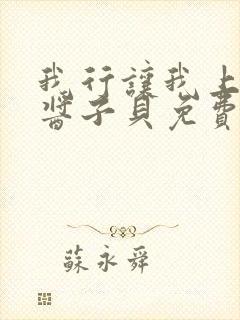 我行讓我上
醬子貝免費
蘇永舜